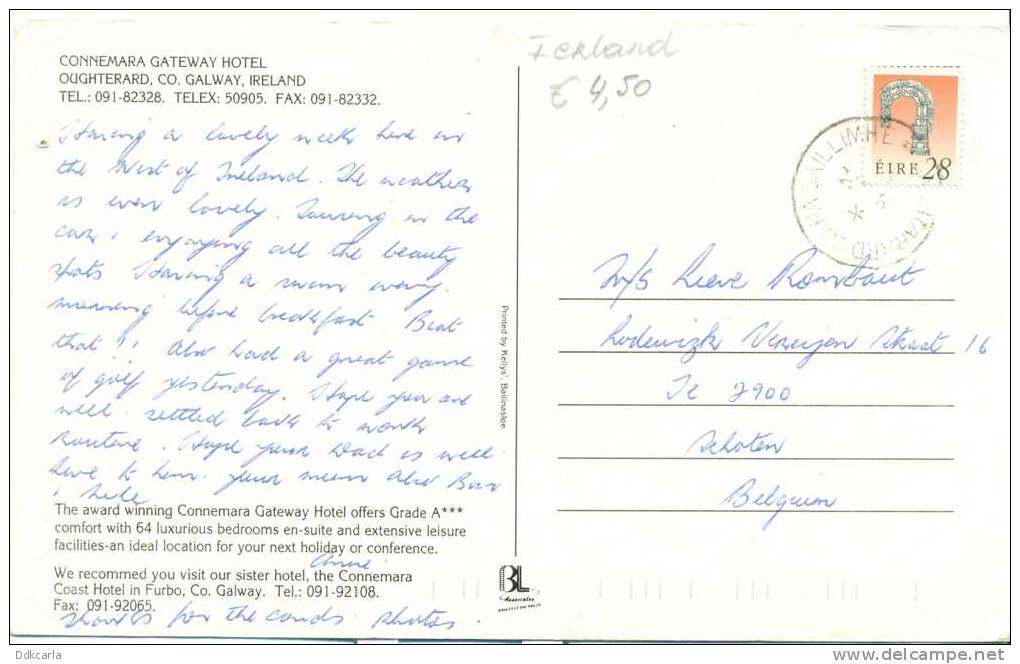 CONNEMARA GATEWAY HOTEL
OUGHTERARD, CO. GALWAY, IRELAND
TEL.: 091-82328. TELEX: 50905. FAX: 091-82332.
Having a lovely week here in
the West of Ireland. The weather
is even lovely. Touring in the
car, enjoying all the beauty
spots. Having a swim every
morning before breakfast. Beat
that!! Also had a great game
of golf yesterday. Hope you are
well settled back to work
Routine. Hope your Dad is well.
Love to him. your mum also
The award winning Connemara Gateway Hotel offers Grade A***
comfort with 64 luxurious bedrooms en-suite and extensive leisure
facilities-an ideal location for your next holiday or conference.
Anne
We recommed you visit our sister hotel, the Connemara
Coast Hotel in Furbo, Co. Galway. Tel.: 091-92108.
Fax: 091-92065.
for the cards photos.
Printed by Kellys', Ballinasloe.
BL
Associates
Ierland
€ 4,50
ÉIRE 28
GAILLIMHE
M/S Lieve Rombaut
Lodewizk Vereijen Straat 16
2900
Schoten
Belgium
Ddkcarla
delcampe.net